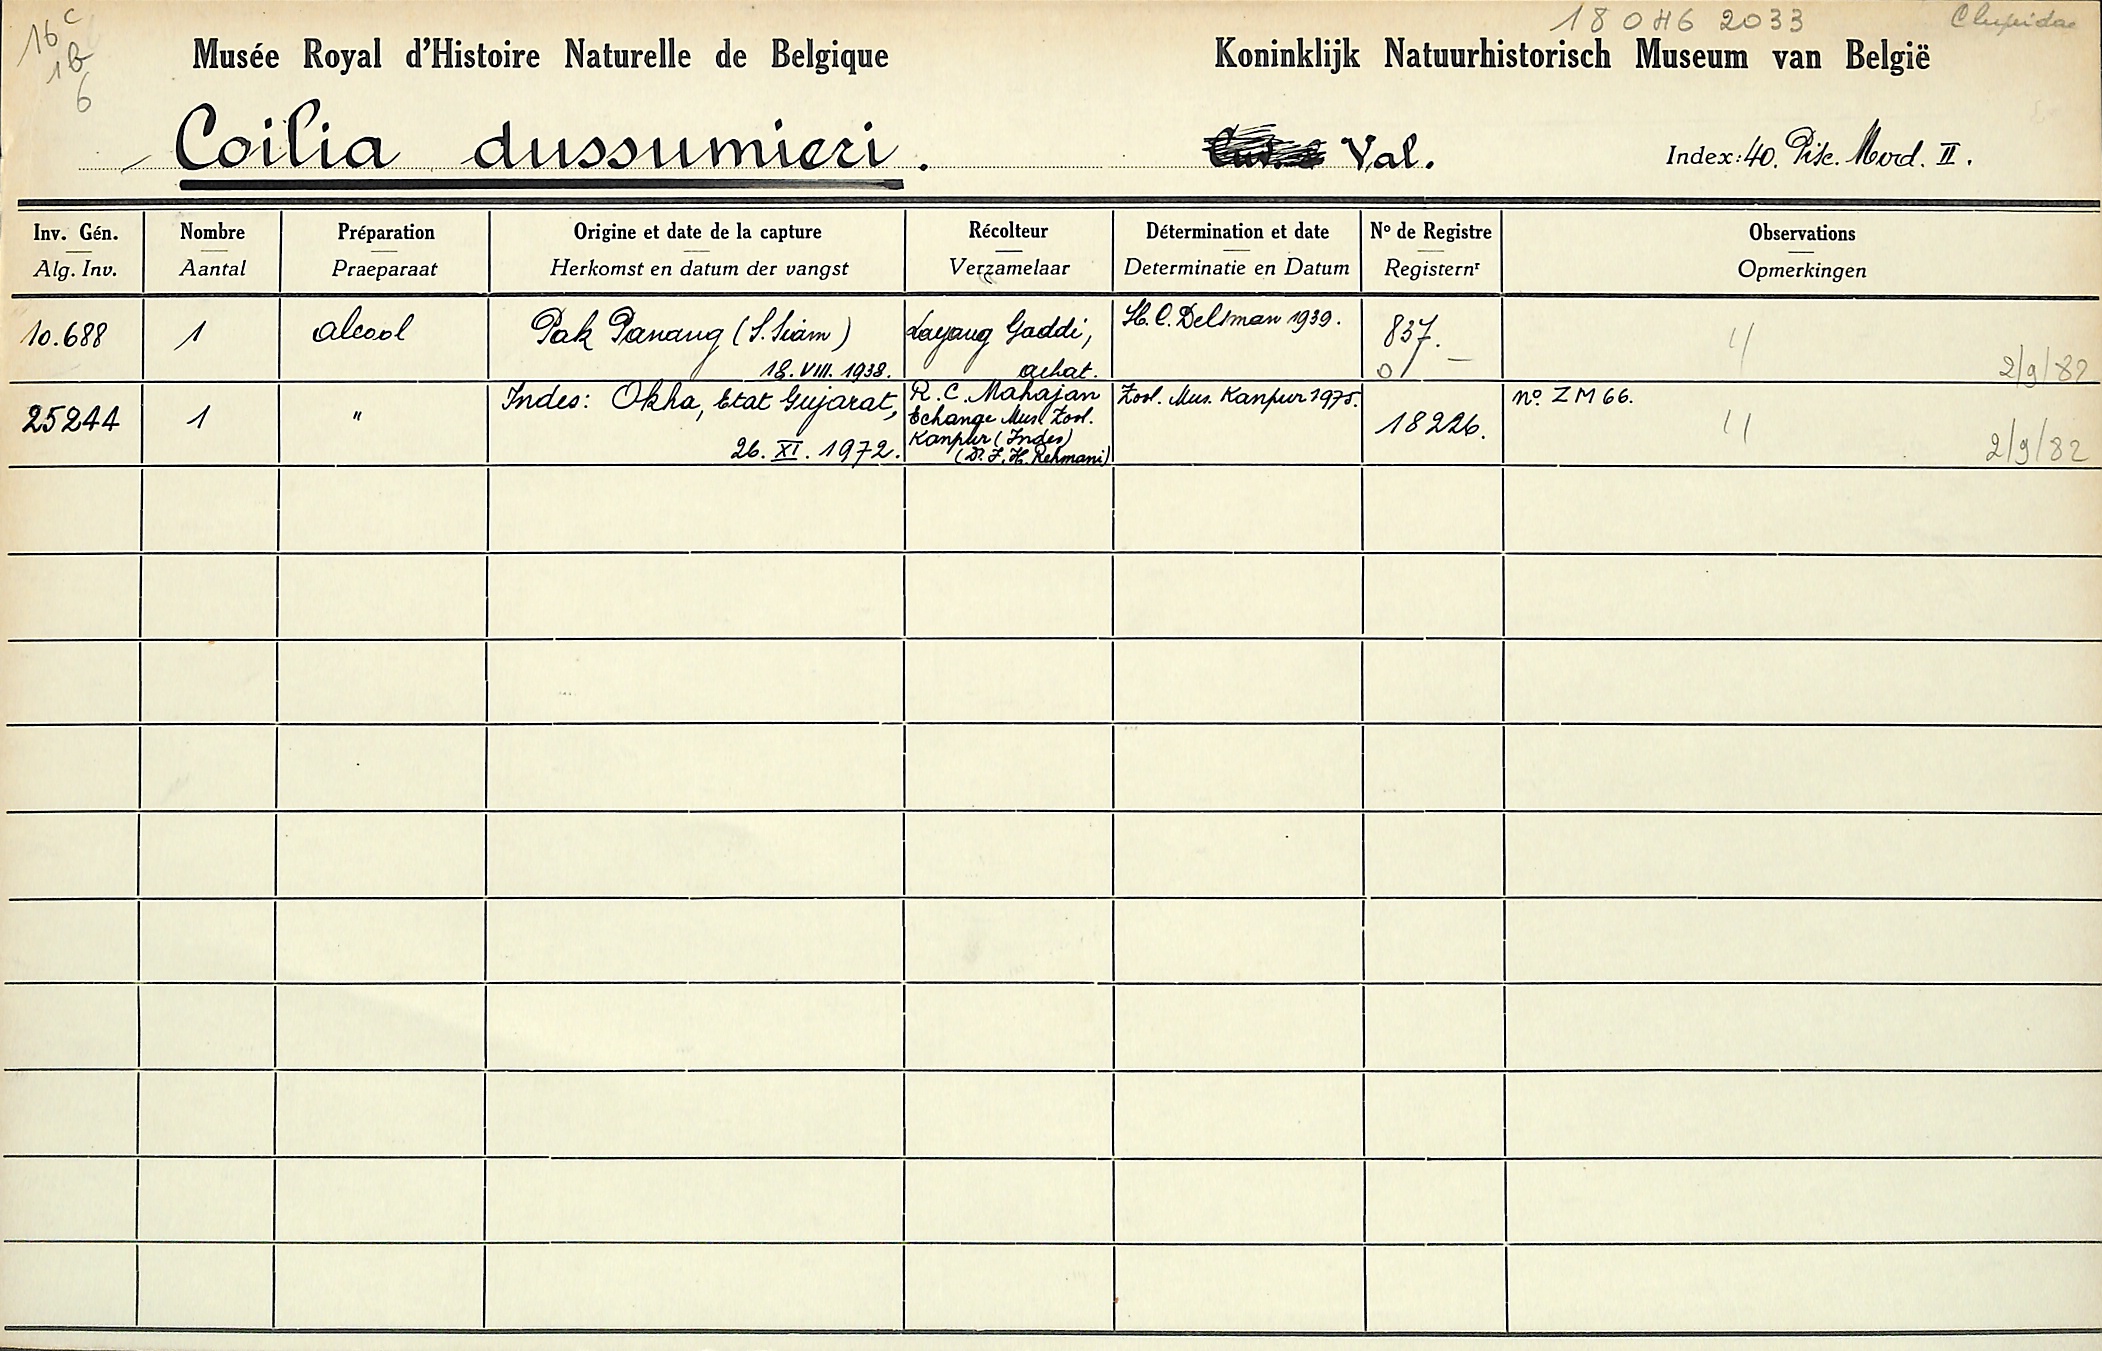 16 c
1b
6
18 0H6 2033
Clupidae
Musée Royal d'Histoire Naturelle de Belgique
Koninklijk Natuurhistorisch Museum van België
Coilia dussumieri.
Val.
Index: 40. Pisc. Mord. II.
Inv. Gén.
Alg. Inv.
Nombre
Aantal
Préparation
Praeparaat
Origine et date de la capture
Herkomst en datum der vangst
Récolteur
Verzamelaar
Détermination et date
Determinatie en Datum
Nº de Registre
Registernr
Observations
Opmerkingen
10.688
1
alcool
Pak Panang (S. Siam)
18. VIII. 1938.
Layang Gaddi,
achat.
H. C. Delsman 1939.
837.
2/9/82
25244
1
"
Indes: Okha, Etat Gujarat,
26. XI. 1972.
R. C. Mahajan
Echange Mus. Zool.
Kanpur (Indes)
(Dr. J. H. Rehmani)
Zool. Mus. Kanpur 1975.
18226.
nº ZM 66.
2/9/82